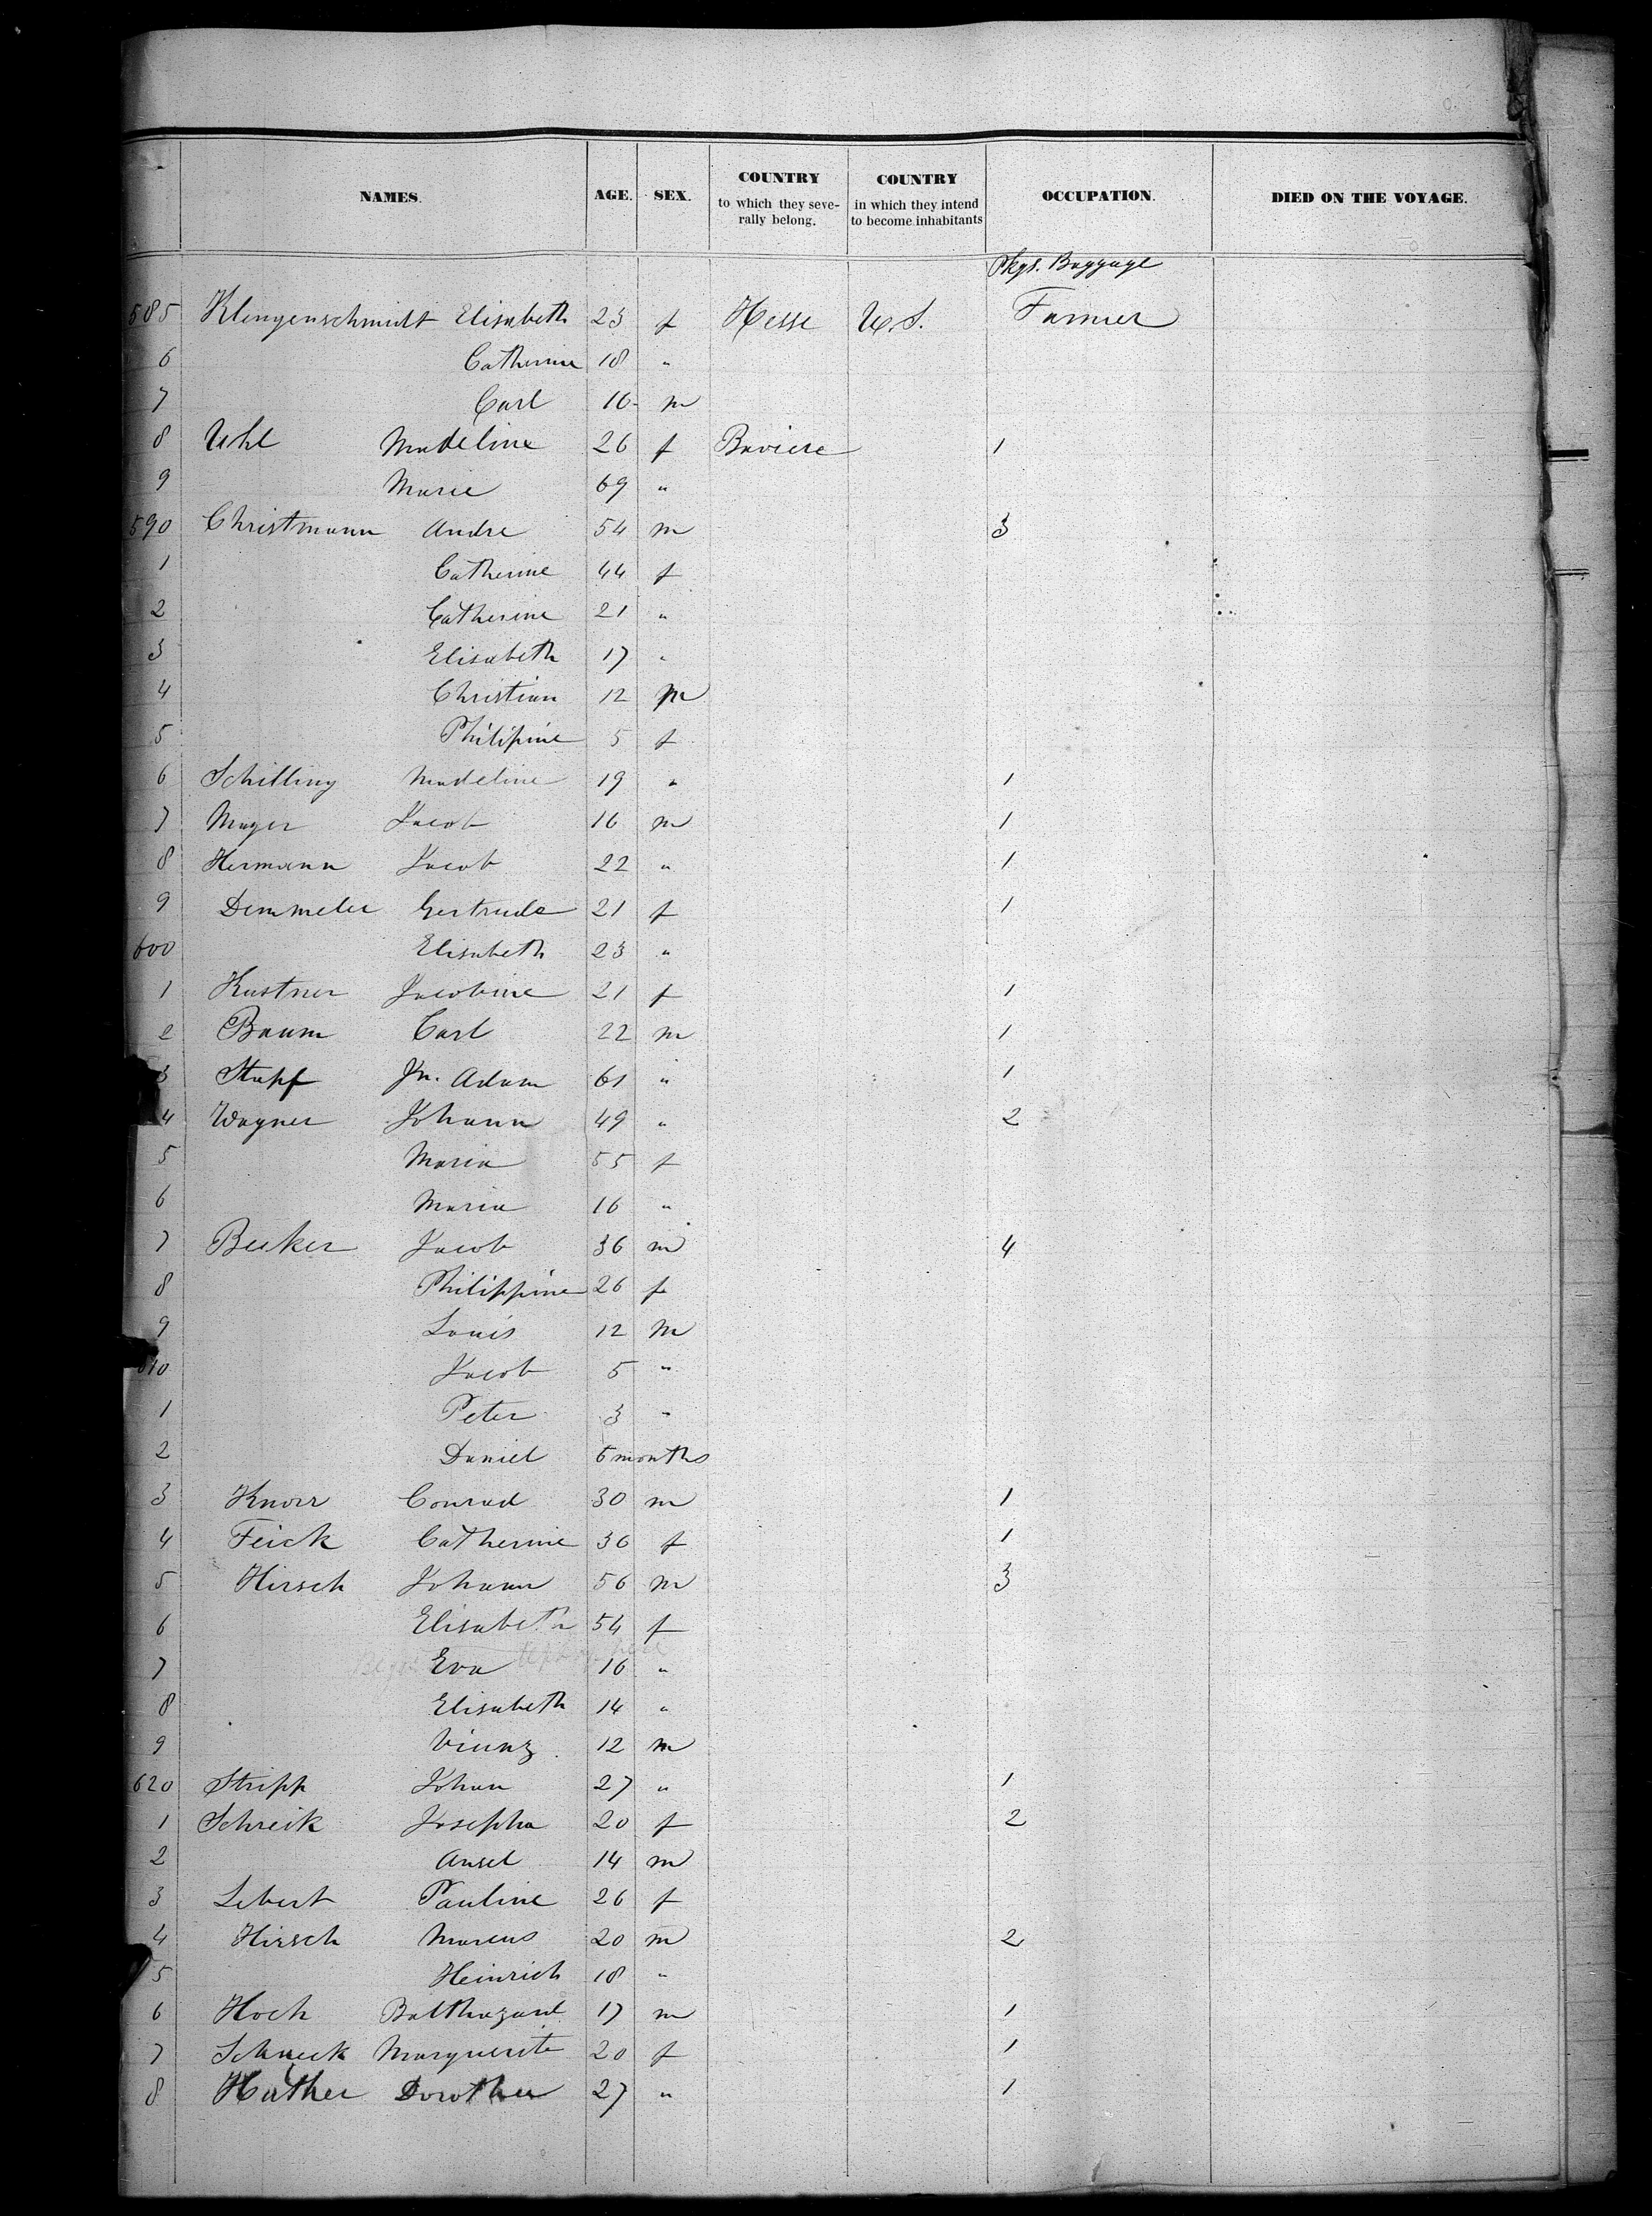 NAMES. AGE. SEX. COUNTRY to which they seve-rally belong. COUNTRY in which they intend to become inhabitants OCCUPATION. DIED ON THE VOYAGE.
Pkgs. Baggage
585 Klingenschmidt Elisabeth 23 f Hesse U.S. Farmer
6 Catherine 18 "
7 Carl 16 m
8 Uhl Madeline 26 f Baviere 1
9 Marie 69 "
590 Christmann Andre 54 m 3
1 Catherine 44 f
2 Catherine 21 "
3 Elisabeth 17 "
4 Christian 12 m
5 Philipine 5 f
6 Schilling Madeline 19 " 1
7 Mayer Jacob 16 m 1
8 Hermann Jacob 22 " 1
9 Demmeler Gertrude 21 f 1
600 Elisabeth 23 "
1 Kustner Jacobine 21 f 1
2 Baum Carl 22 m 1
3 Stapf Jn. Adam 61 " 1
4 Wagner Johann 49 " 2
5 Maria 55 f
6 Maria 16 "
7 Becker Jacob 36 m 4
8 Philippine 26 f
9 Louis 12 m
610 Jacob 5 "
1 Peter 3 "
2 Daniel 6 months
3 Knorr Conrad 30 m 1
4 Feick Catherine 36 f 1
5 Hirsch Johann 56 m 3
6 Elisabeth 54 f
7 Eva 16 "
8 Elisabeth 14 "
9 12 m
620 Stripp Johan 27 " 1
1 Schreik Josepha 20 f 2
2 Ansel 14 m
3 Lebert Pauline 26 f
4 Hirsch Marcus 20 m 2
5 Heinrich 18 "
6 Hoch Balthazard 17 m 1
7 Schneck Marguerite 20 f 1
8 Hather Dorothea 27 " 1